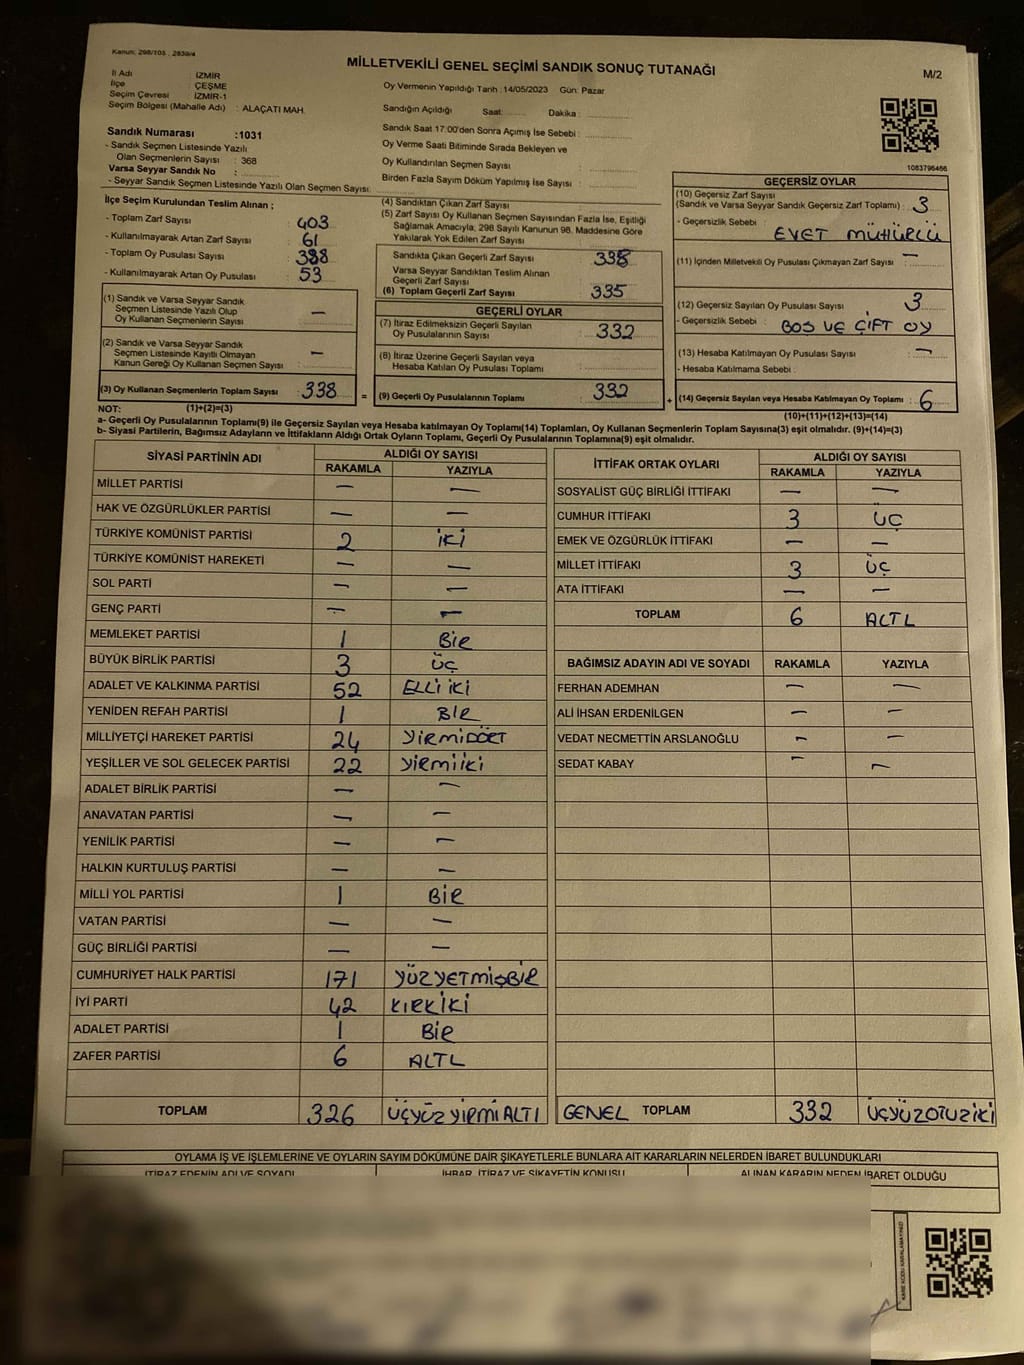 Kanun: 298/103 , 2839/4
MİLLETVEKİLİ GENEL SEÇİMİ SANDIK SONUÇ TUTANAĞI
M/2
İl Adı : İZMİR
İlçe : ÇEŞME
Seçim Çevresi : İZMİR-1
Seçim Bölgesi (Mahalle Adı) : ALAÇATI MAH.
Oy Vermenin Yapıldığı Tarih : 14/05/2023 Gün: Pazar
Sandığın Açıldığı Saat: Dakika :
Sandık Saat 17:00'den Sonra Açımış İse Sebebi :
Oy Verme Saati Bitiminde Sırada Bekleyen ve
Oy Kullandırılan Seçmen Sayısı
Birden Fazla Sayım Döküm Yapılmış İse Sayısı :
1083796466
Sandık Numarası :1031
- Sandık Seçmen Listesinde Yazılı
Olan Seçmenlerin Sayısı : 368
Varsa Seyyar Sandık No :
- Seyyar Sandık Seçmen Listesinde Yazılı Olan Seçmen Sayısı:
İlçe Seçim Kurulundan Teslim Alınan ;
- Toplam Zarf Sayısı : 403
- Kullanılmayarak Artan Zarf Sayısı : 61
- Toplam Oy Pusulası Sayısı : 388
- Kullanılmayarak Artan Oy Pusulası : 53
(1) Sandık ve Varsa Seyyar Sandık
Seçmen Listesinde Yazılı Olup
Oy Kullanan Seçmenlerin Sayısı : —
(2) Sandık ve Varsa Seyyar Sandık
Seçmen Listesinde Kayıtlı Olmayan
Kanun Gereği Oy Kullanan Seçmen Sayısı : —
(3) Oy Kullanan Seçmenlerin Toplam Sayısı : 338 =
(4) Sandıktan Çıkan Zarf Sayısı :
(5) Zarf Sayısı Oy Kullanan Seçmen Sayısından Fazla İse, Eşitliği
Sağlamak Amacıyla, 298 Sayılı Kanunun 98. Maddesine Göre
Yakılarak Yok Edilen Zarf Sayısı
Sandıkta Çıkan Geçerli Zarf Sayısı : 335
Varsa Seyyar Sandıktan Teslim Alınan
Geçerli Zarf Sayısı
(6) Toplam Geçerli Zarf Sayısı : 335
GEÇERLİ OYLAR
(7) İtiraz Edilmeksizin Geçerli Sayılan
Oy Pusulalarının Sayısı : 332
(8) İtiraz Üzerine Geçerli Sayılan veya
Hesaba Katılan Oy Pusulası Toplamı
(9) Geçerli Oy Pusulalarının Toplamı : 332 +
GEÇERSİZ OYLAR
(10) Geçersiz Zarf Sayısı
(Sandık ve Varsa Seyyar Sandık Geçersiz Zarf Toplamı) : 3
- Geçersizlik Sebebi : EVET MÜHÜRLÜ
(11) İçinden Milletvekili Oy Pusulası Çıkmayan Zarf Sayısı : —
(12) Geçersiz Sayılan Oy Pusulası Sayısı : 3
- Geçersizlik Sebebi : BOŞ VE ÇİFT OY
(13) Hesaba Katılmayan Oy Pusulası Sayısı : —
- Hesaba Katılmama Sebebi :
(14) Geçersiz Sayılan veya Hesaba Katılmayan Oy Toplamı : 6
NOT: (1)+(2)=(3)
(10)+(11)+(12)+(13)=(14)
a- Geçerli Oy Pusulalarının Toplamı(9) ile Geçersiz Sayılan veya Hesaba katılmayan Oy Toplamı(14) Toplamları, Oy Kullanan Seçmenlerin Toplam Sayısına(3) eşit olmalıdır. (9)+(14)=(3)
b- Siyasi Partilerin, Bağımsız Adayların ve İttifakların Aldığı Ortak Oyların Toplamı, Geçerli Oy Pusulalarının Toplamına(9) eşit olmalıdır.
SİYASİ PARTİNİN ADI ALDIĞI OY SAYISI
RAKAMLA YAZIYLA
MİLLET PARTİSİ — —
HAK VE ÖZGÜRLÜKLER PARTİSİ — —
TÜRKİYE KOMÜNİST PARTİSİ 2 İKİ
TÜRKİYE KOMÜNİST HAREKETİ — —
SOL PARTİ — —
GENÇ PARTİ — —
MEMLEKET PARTİSİ 1 BİR
BÜYÜK BİRLİK PARTİSİ 3 ÜÇ
ADALET VE KALKINMA PARTİSİ 52 ELLİ İKİ
YENİDEN REFAH PARTİSİ 1 BİR
MİLLİYETÇİ HAREKET PARTİSİ 24 YİRMİDÖRT
YEŞİLLER VE SOL GELECEK PARTİSİ 22 YİRMİİKİ
ADALET BİRLİK PARTİSİ — —
ANAVATAN PARTİSİ — —
YENİLİK PARTİSİ — —
HALKIN KURTULUŞ PARTİSİ — —
MİLLİ YOL PARTİSİ 1 BİR
VATAN PARTİSİ — —
GÜÇ BİRLİĞİ PARTİSİ — —
CUMHURİYET HALK PARTİSİ 171 YÜZYETMİŞBİR
İYİ PARTİ 42 KIRKİKİ
ADALET PARTİSİ 1 BİR
ZAFER PARTİSİ 6 ALTI
TOPLAM 326 ÜÇYÜZYİRMİALTI
İTTİFAK ORTAK OYLARI ALDIĞI OY SAYISI
RAKAMLA YAZIYLA
SOSYALİST GÜÇ BİRLİĞİ İTTİFAKI — —
CUMHUR İTTİFAKI 3 ÜÇ
EMEK VE ÖZGÜRLÜK İTTİFAKI — —
MİLLET İTTİFAKI 3 ÜÇ
ATA İTTİFAKI — —
TOPLAM 6 ALTI
BAĞIMSIZ ADAYIN ADI VE SOYADI RAKAMLA YAZIYLA
FERHAN ADEMHAN — —
ALİ İHSAN ERDENİLGEN — —
VEDAT NECMETTİN ARSLANOĞLU — —
SEDAT KABAY — —
GENEL TOPLAM 332 ÜÇYÜZOTUZİKİ
OYLAMA İŞ VE İŞLEMLERİNE VE OYLARIN SAYIM DÖKÜMÜNE DAİR ŞİKAYETLERLE BUNLARA AİT KARARLARIN NELERDEN İBARET BULUNDUKLARI
İTİRAZ EDENİN ADI VE SOYADI İHBAR, İTİRAZ VE ŞİKAYETİN KONUSU ALINAN KARARIN NEDEN İBARET OLDUĞU